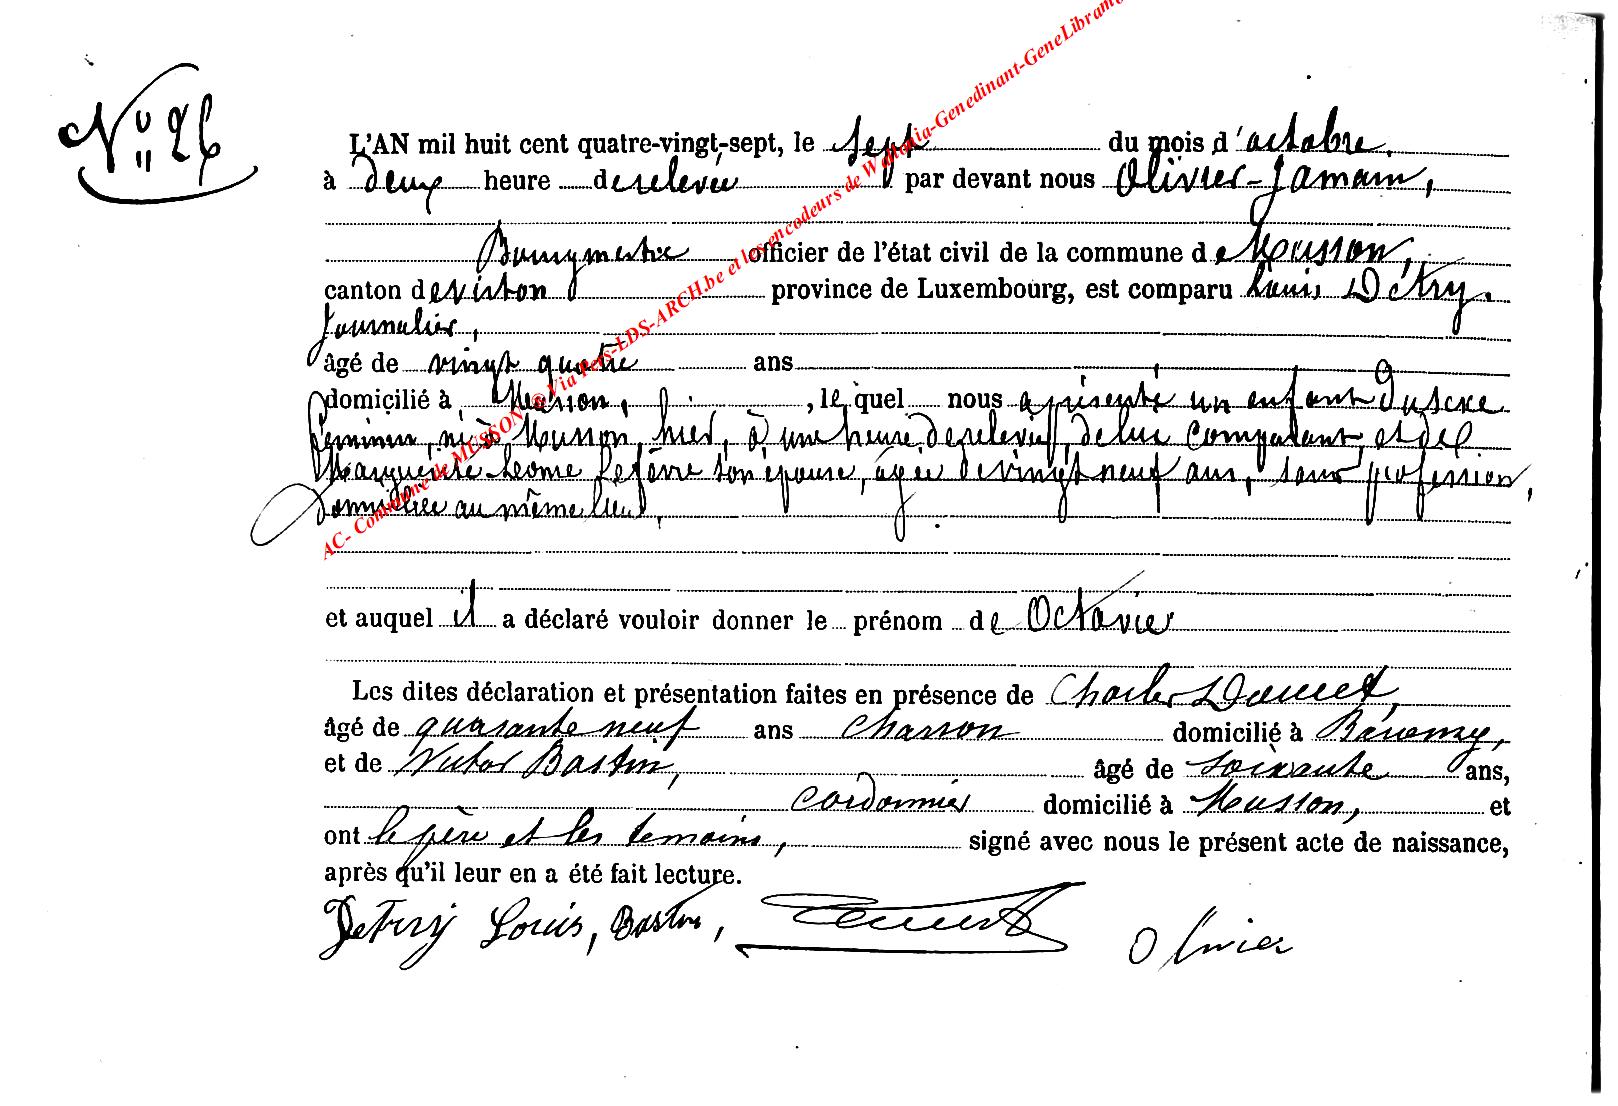 No 26
L'AN mil huit cent quatre-vingt-sept, le sept du mois d'octobre,
à deux heure de relevée par devant nous Olivier-Jamain,
Bourgmestre officier de l'état civil de la commune de Musson,
canton de Virton province de Luxembourg, est comparu Louis Détry,
Journalier,
âgé de vingt quatre ans
domicilié à Musson, lequel nous a présenté un enfant du sexe
féminin, né à Musson, hier, à une heure de relevée, de lui comparant, et de
Marguerite Leonie Lefèvre son épouse, âgée de vingt neuf ans, sans profession,
domiciliée au même lieu,
et auquel il a déclaré vouloir donner le prénom de Octavie
Les dites déclaration et présentation faites en présence de Charles
âgé de quarante neuf ans Charron domicilié à
et de Victor Bastin, âgé de soixante ans,
cordonnier domicilié à Musson, et
ont le père et les témoins, signé avec nous le présent acte de naissance,
après qu'il leur en a été fait lecture.
Detry Louis, Bastin, Olivier
AC- Commune de MUSSON ® Via Pers-LDS-ARCH.be et les encodeurs de Wallonia-Genedinant-GeneLibramont